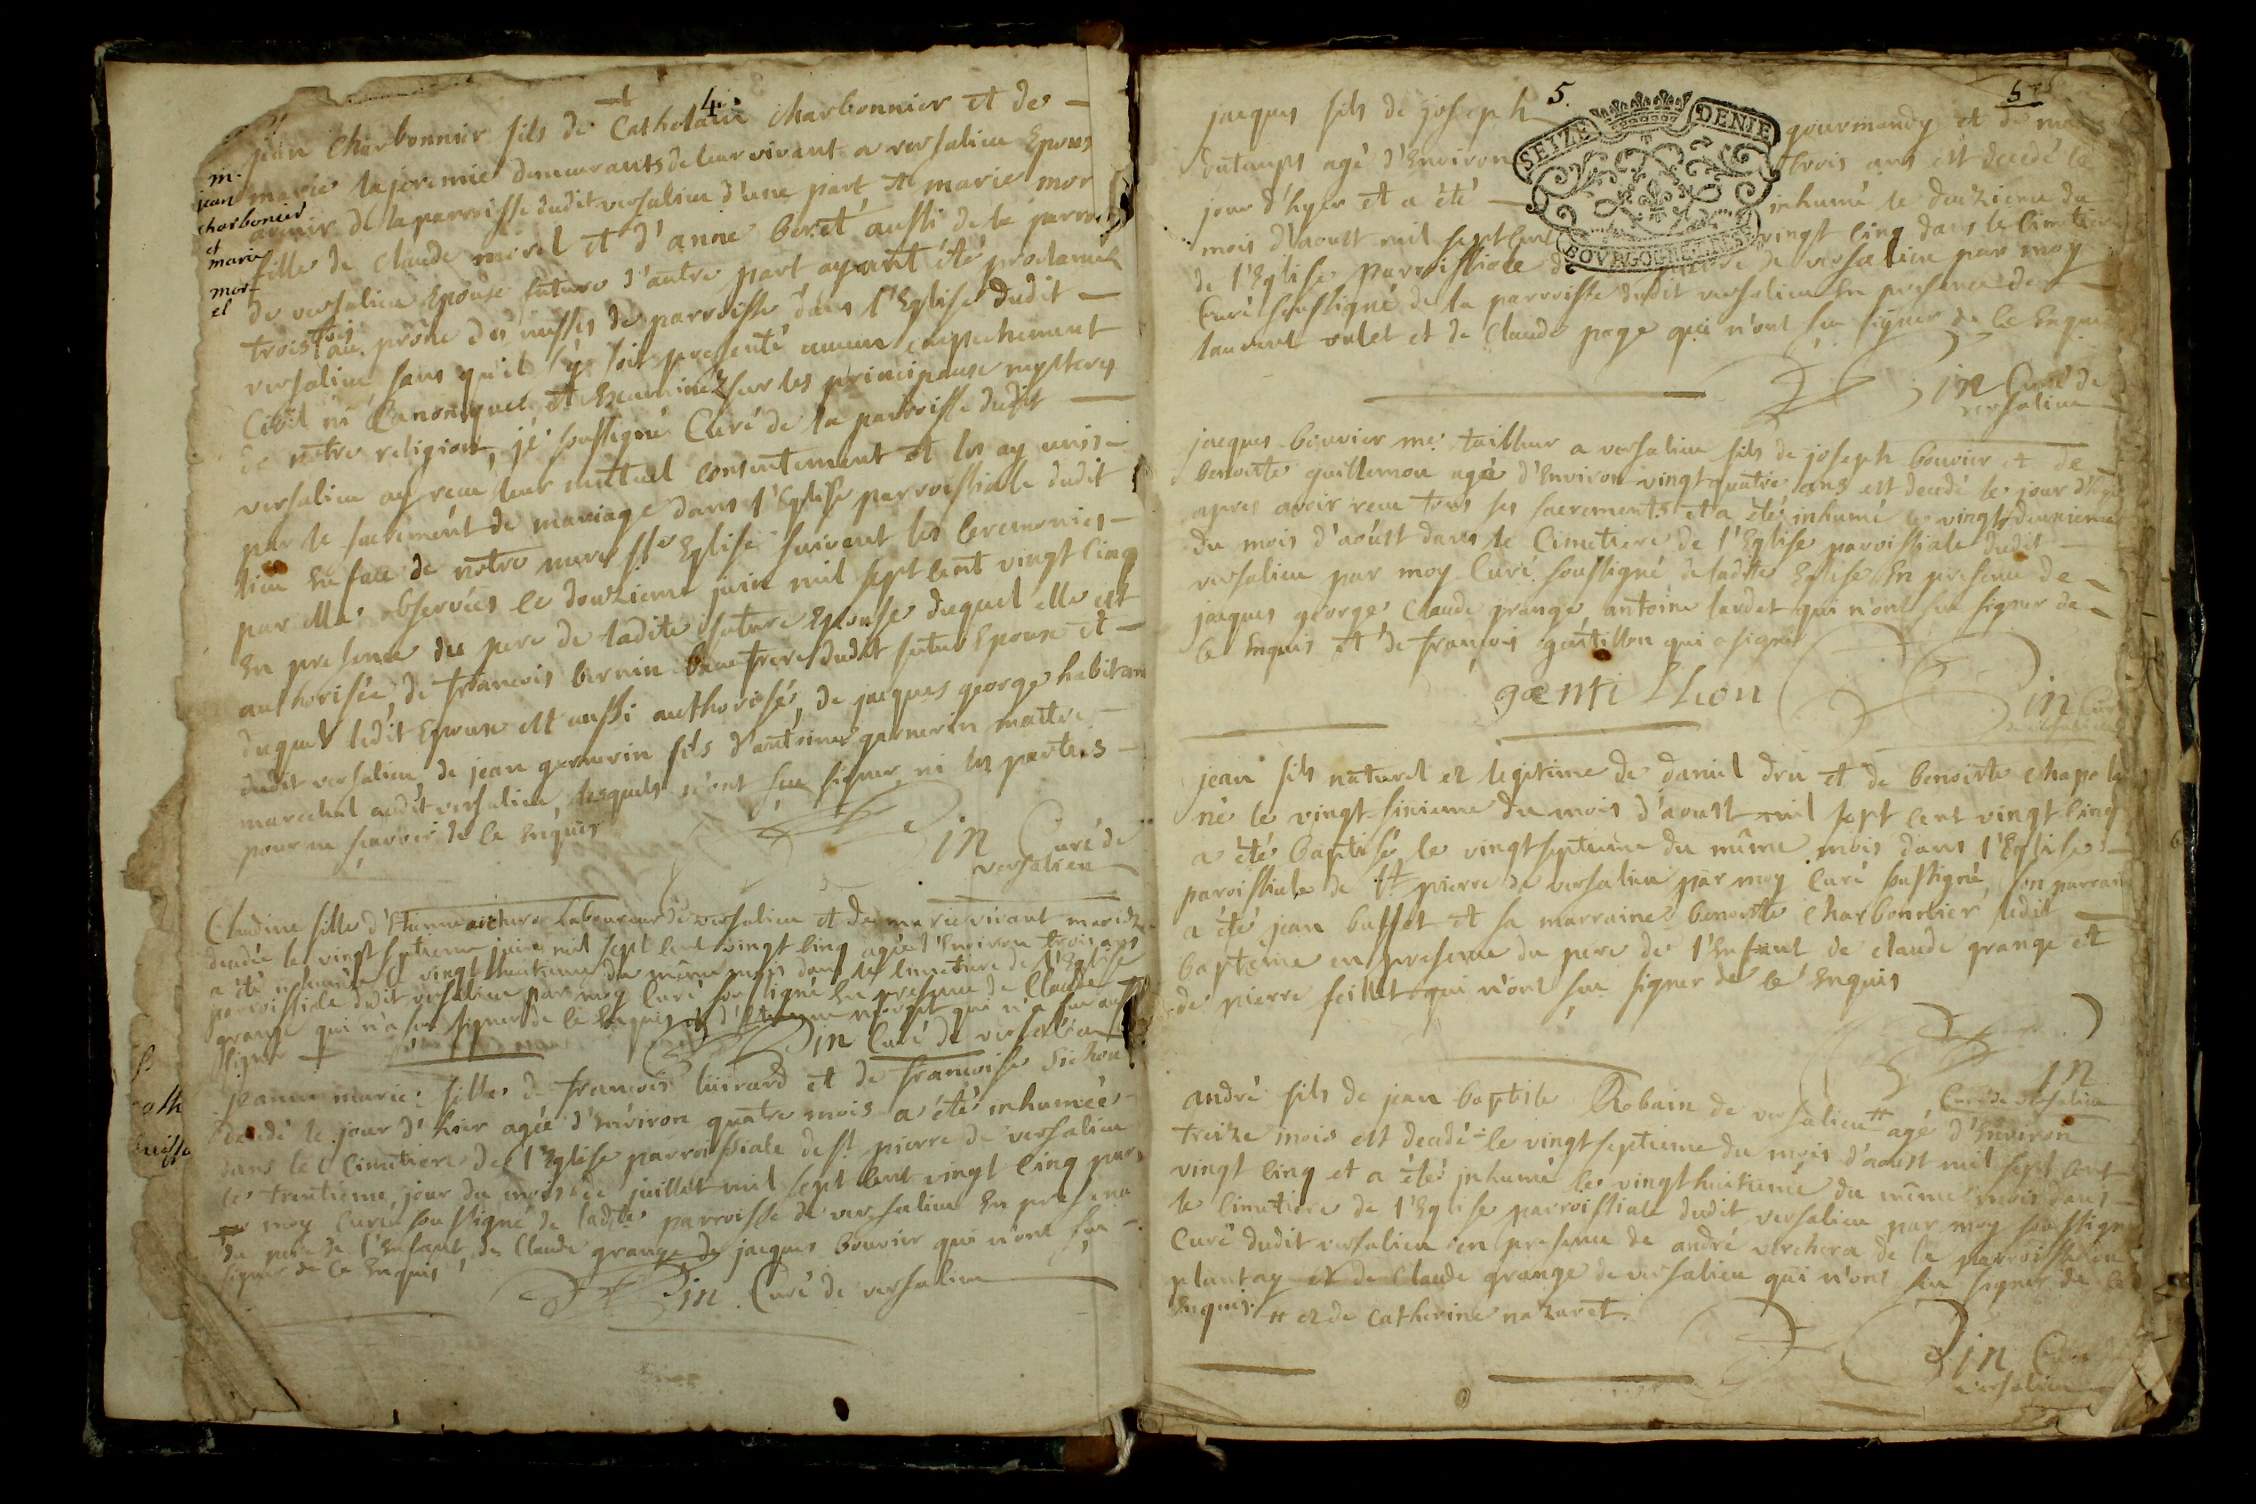 4.
m.
jean
charbonier
et
marie
mor-
el
jean Charbonnier fils de Catholain charbonnier et de —
marie laperemie demeurants de leur vivant a versalieu Epoux
avenir de la parroisse dudit versalieu d'une part et marie mor
fille de claude morel et d'anne beret aussi de la parroi
de versalieu Epouse future d'autre part ayant été proclamés
trois fois au prône des messes de parroisse dans l'Eglise dudit —
versalieu sans qu'il s'y soit presenté aucun empechement
Civil ni Canonique et Examinez sur les principaux mysteres
de notre religion, je soussigné Curé de la parroisse dudit —
versalieu ay reçu leur mutuel consentement et les ay unis —
par le sacrement de mariage dans l'Eglise parroissiale dudit
lieu En face de notre mere ste Eglise suivant les Ceremonies —
par elle observées le douzieme juin mil sept cent vingt cinq
En presence du pere de ladite future Epouse duquel elle est
authorisée, de françois bernin beaufrere dudit futur Epoux et —
duquel ledit Epoux est aussi authorisé, de jacques george habitant
dudit versalieu, de jean garnerin fils d'antoine garnerin maitre —
marechal audit versalieu, lesquels n'ont sçu signer ni les parties —
pour ne sçavoir de ce Enquis
in Curé de
versalieu
Claudine fille d'Etienne Laboureur de versalieu et de marie vivant mariez
decedée le vingt septieme juin mil sept cent vingt cinq agée d'Environ trois ans
a été inhumée le vingt huitieme du même mois dans le Cimetiere de l'Eglise
paroissiale dudit versalieu par moy Curé soussigné En presence de Claude
grange qui n'a sçu signer de ce Enquis et d'Etienne qui n'a sçu aussi
signer
in Curé de versalieu
jeanne marie fille de françois luirard et de françoise sichon
decedé le jour d'hier agée d'Environ quatre mois a été inhumée
dans le Cimetiere de l'Eglise parroissiale de st pierre de versalieu
le trentieme jour du mois de juillet mil sept cent vingt cinq par
moy Curé soussigné de ladite parroisse de versalieu En presence
du pere de l'Enfant, de Claude grange de jacques bouvier qui n'ont sçu —
signer de ce Enquis
in Curé de versalieu
5.
5
SEIZE DENIE
BOVRGOGNE
jacques fils de joseph gourmandy et de ma
dutamps agé d'Environ trois ans est decedé le
jour d'hyer et a été — inhumé le douzieme du
mois d'aoust mil sept cent vingt cinq dans le Cimetiere
de l'Eglise parroissiale de pierre de versalieu par moy
Curé soussigné de la parroisse dudit versalieu En presence de —
laurent vulet et de Claude page qui n'ont sçu signer de ce Enquis
in Curé de
versalieu
jacques bouvier me. tailleur a versalieu fils de joseph bouvier et de
benoite guillemon agé d'Environ vingt quatre ans est decedé le jour d'hyer
apres avoir reçu tous ses sacrements et a été inhumé le vingt deuxieme
du mois d'aoust dans le Cimetiere de l'Eglise paroissiale dudit —
versalieu par moy Curé soussigné de ladite Eglise En presence de —
jacques george Claude grange, antoine lardet qui n'ont sçu signer de —
ce Enquis et de françois gantillon qui a signé
gæntiLLion
in Curé
jean fils naturel et legitime de daniel dru et de benoite chapela
né le vingt sixieme du mois d'aoust mil sept cent vingt cinq
a été baptisé le vingt septieme du même mois dans l'Eglise —
paroissiale de st pierre de versalieu par moy Curé soussigné, son parrain
a été jean busset et sa marraine benoite charbonnier ledit —
bapteme en presence du pere de l'Enfant de claude grange et
de pierre feillet qui n'ont sçu signer de ce Enquis
in
Curé de versalieu
andré fils de jean baptiste Robain de versalieu # agé d'Environ
treize mois est decedé le vingt septieme du mois d'aoust mil sept cent
vingt cinq et a été inhumé le vingt huitieme du même mois dans —
le cimetiere de l'Eglise parroissiale dudit versalieu par moy soussigné
Curé dudit versalieu en presence de andré verchera de la parroisse du
plantay et de Claude grange de versalieu qui n'ont sçu signer de ce
Enquis. # et de catherine nazaret.
in Curé de
versalieu